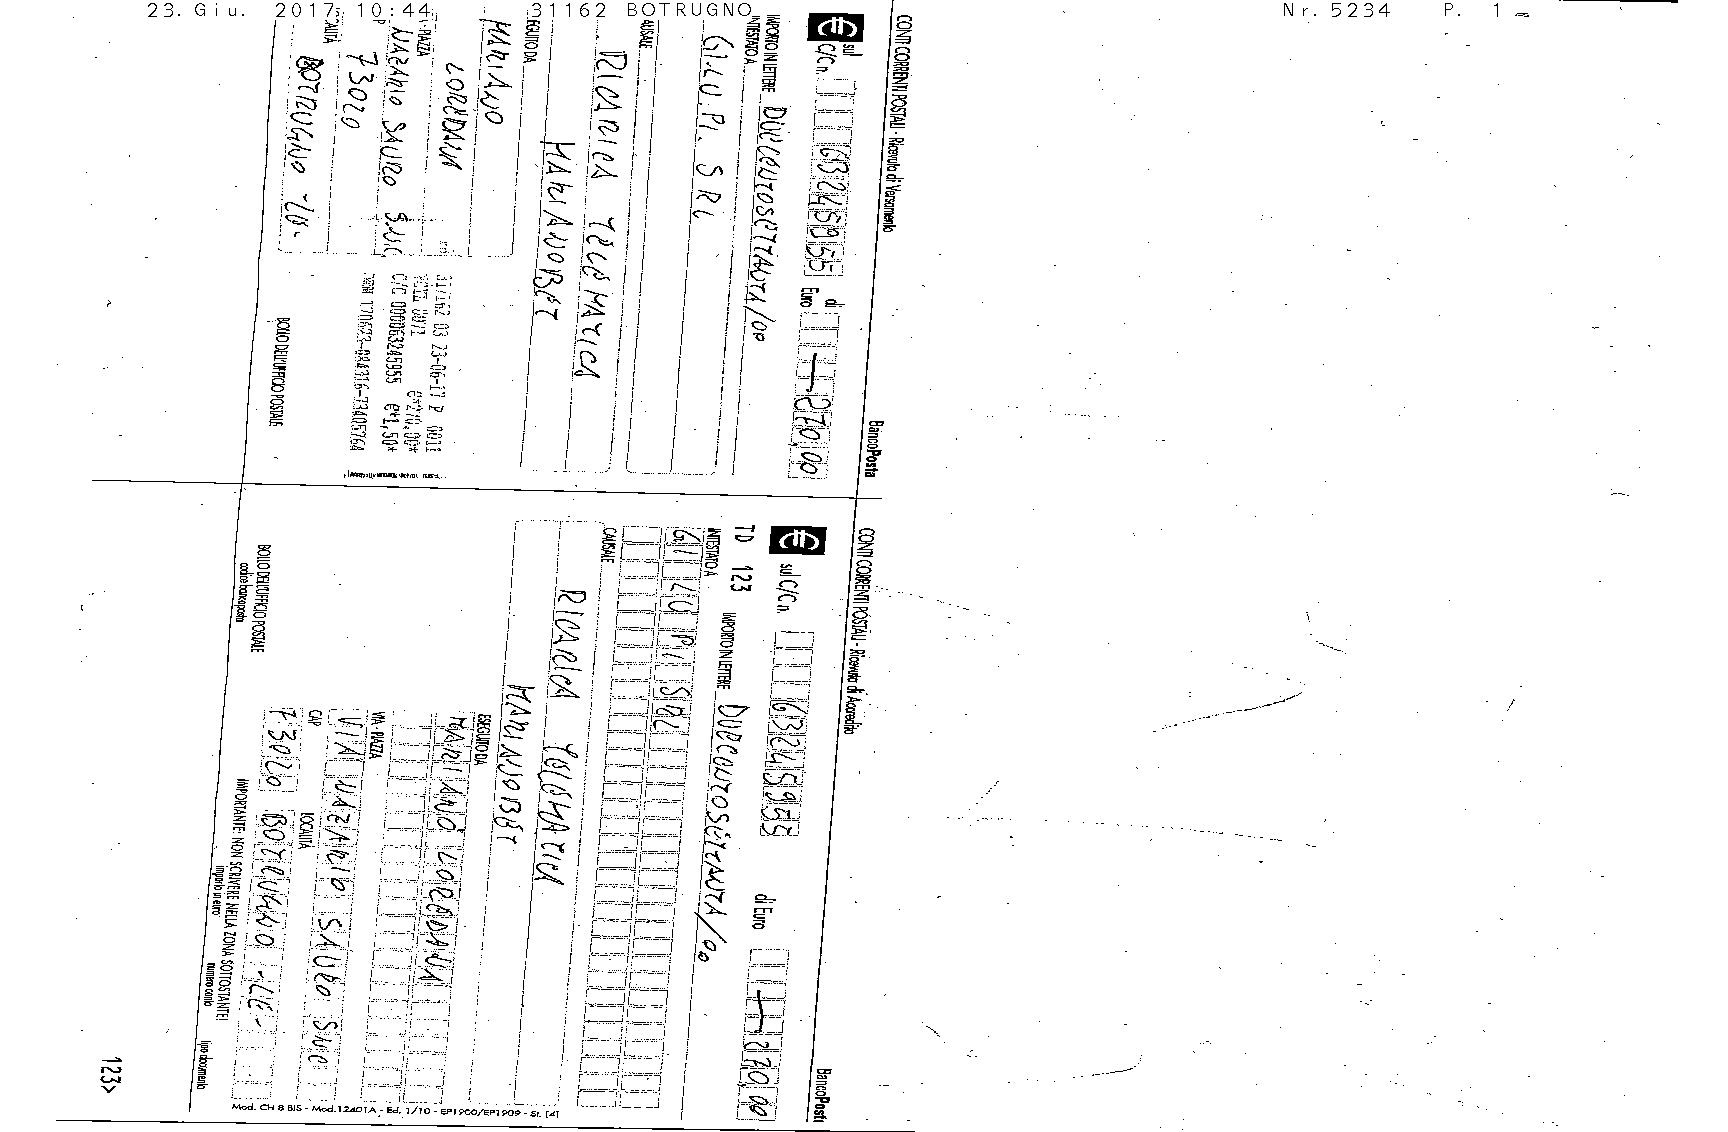 23.Giu. 2017 10:44 31162 BOTRUGNO Nr.5234 P. 1
CONTI CORRENTI POSTALI - Ricevuta di Versamento
BancoPosta
sul C/C n. 63245955 di Euro 270,00
IMPORTO IN LETTERE DUECENTOSETTANTA/00
INTESTATO A
GI.LU.PI. SRL
CAUSALE
RICARICA TELEMATICA
MARIANOBET
ESEGUITO DA
MARIANO
LOREDANA
VIA - PIAZZA
NAZARIO SAURO SNC
73020
LOCALITÀ
BOTRUGNO -LE-
31/162 03 23-06-17 P 0011
0072
€*270,00*
C/C 000063245955 €*1,50*
BOLLO DELL'UFFICIO POSTALE
CONTI CORRENTI POSTALI - Ricevuta di Accredito
BancoPosta
sul C/C n. 63245955 di Euro 270,00
TD 123 IMPORTO IN LETTERE DUECENTOSETTANTA/00
INTESTATO A
GI LU PI SRL
CAUSALE
RICARICA TELEMATICA
MARIANOBET
ESEGUITO DA
MARIANO LOREDANA
VIA - PIAZZA
VIA NAZARIO SAURO SNC
CAP LOCALITÀ
73020 BOTRUGNO -LE-
BOLLO DELL'UFFICIO POSTALE
codice bancoposta
IMPORTANTE: NON SCRIVERE NELLA ZONA SOTTOSTANTE!
importo in euro numero conto tipo documento
123>
Mod. CH 8 BIS - Mod.12401A - Ed. 1/10 - EP1900/EP1909 - St. [4]